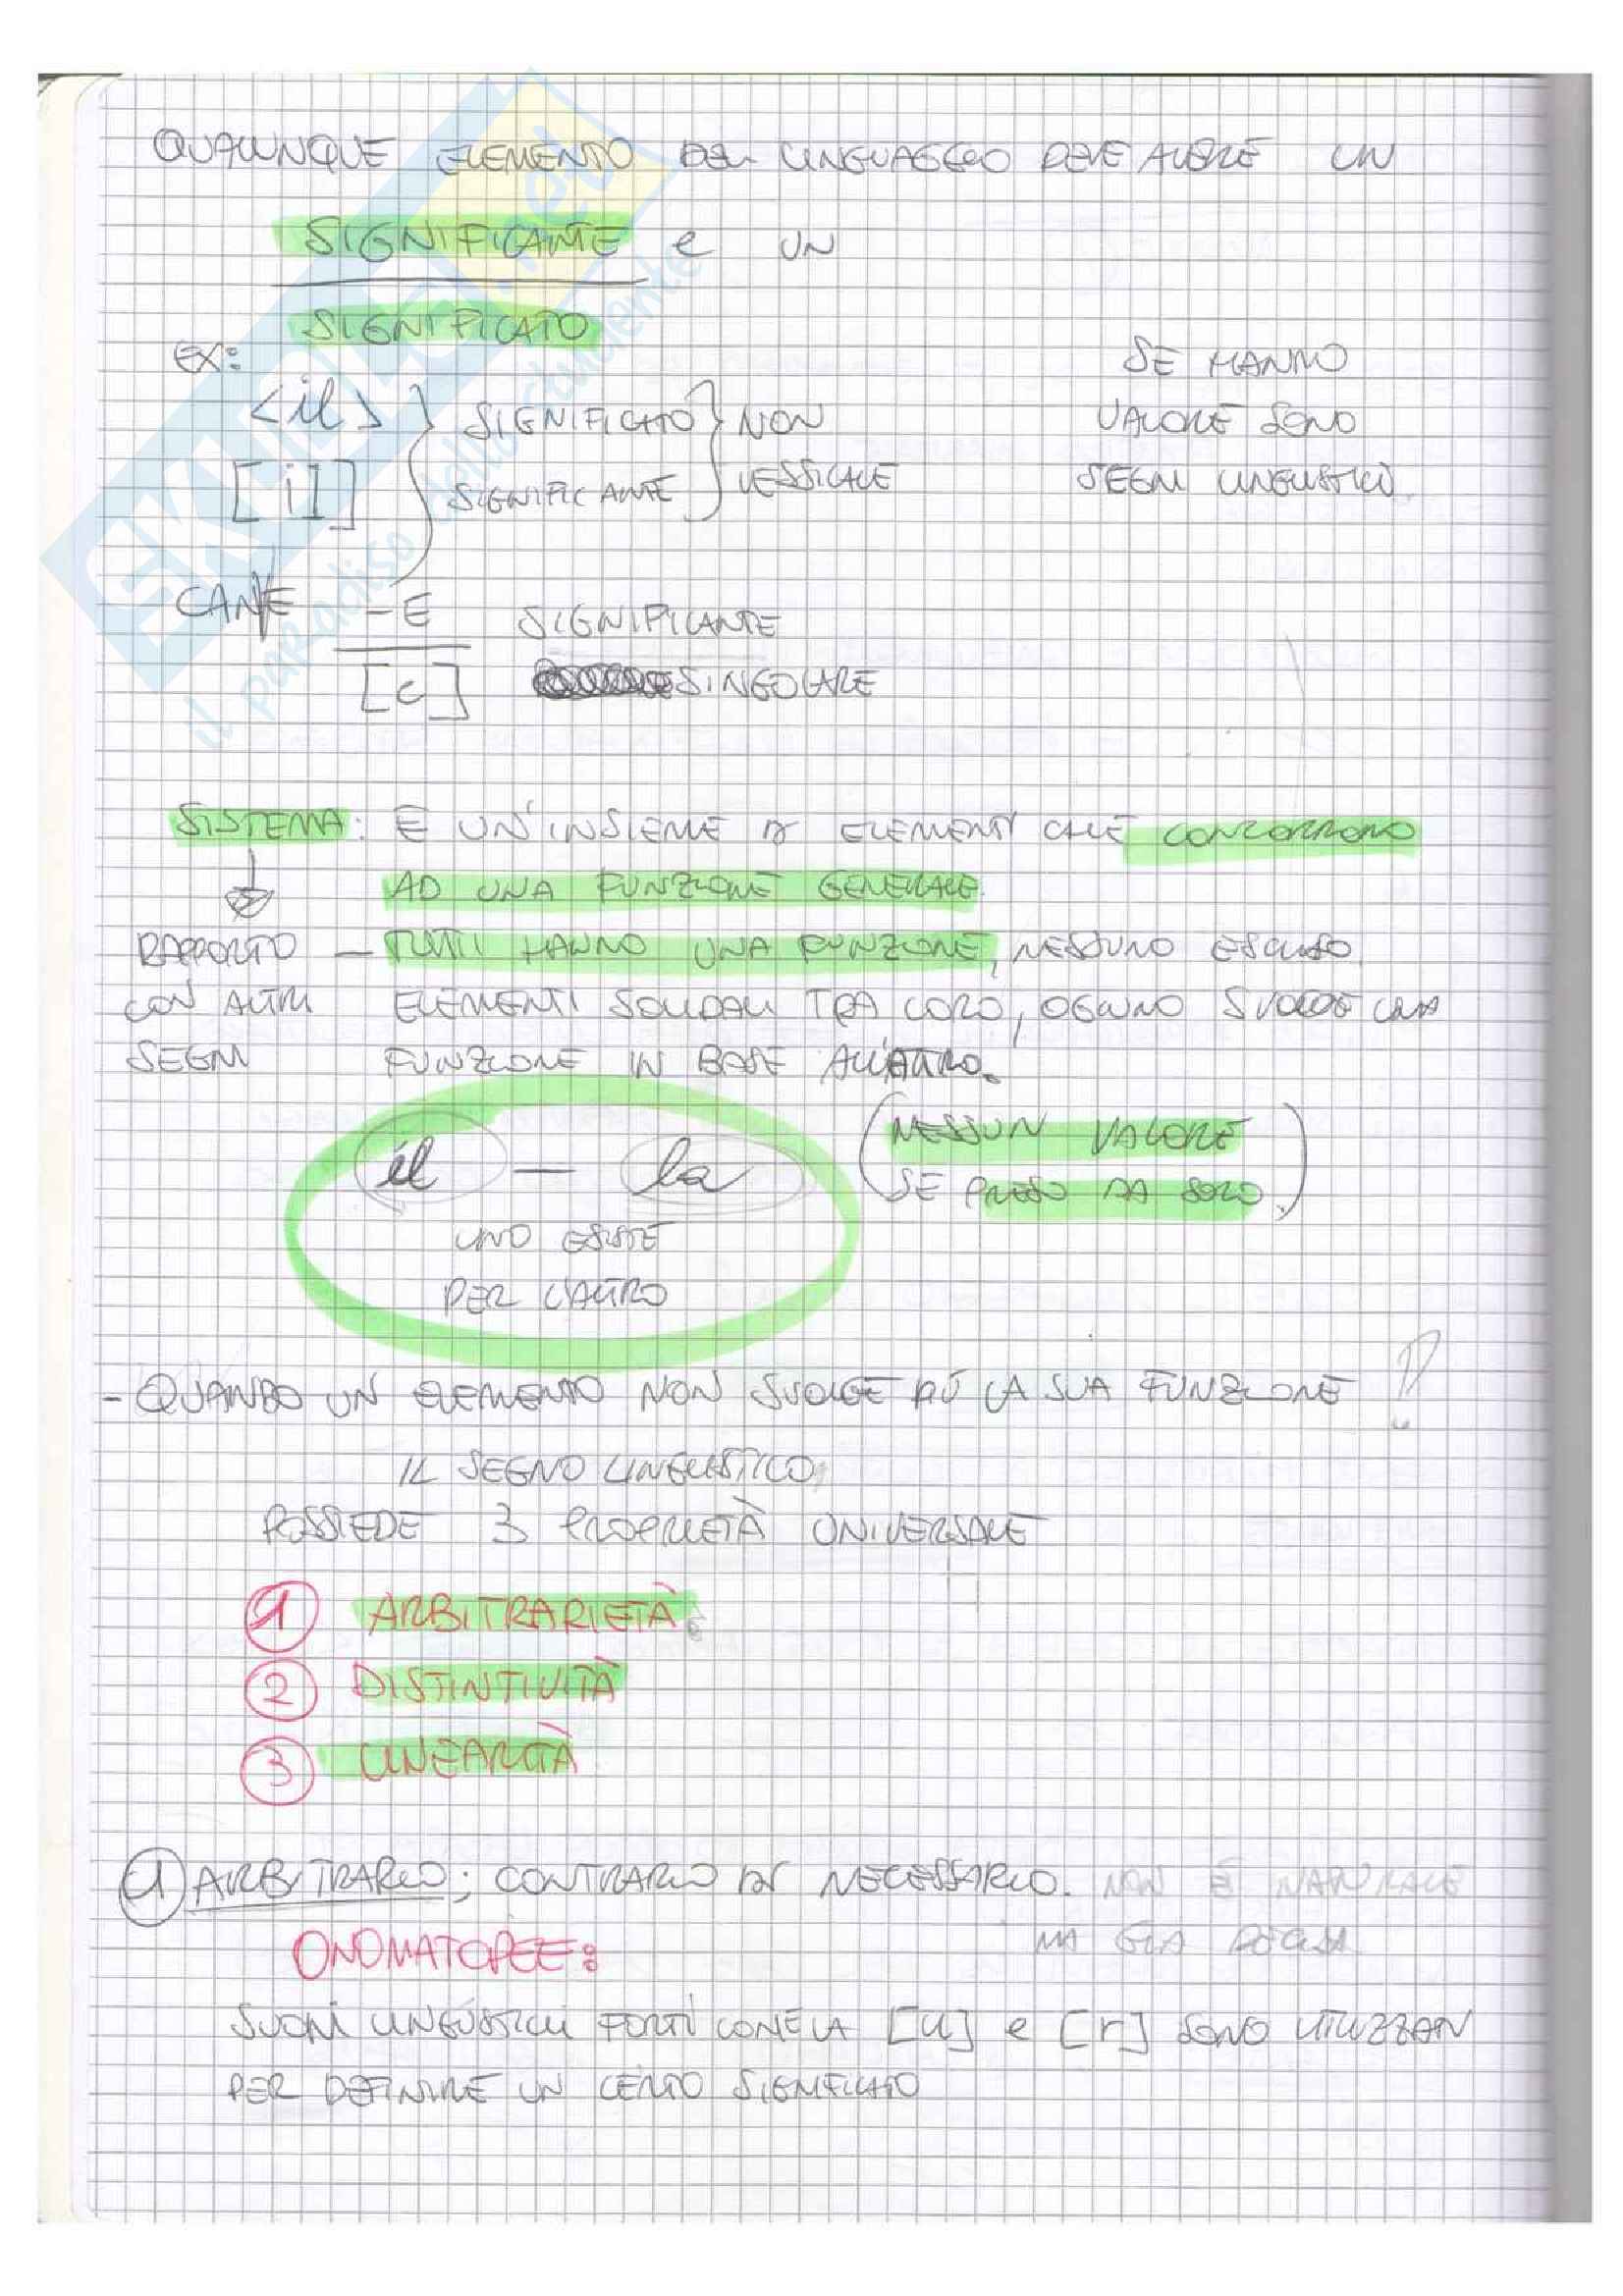 QUALUNQUE ELEMENTO DEL LINGUAGGIO DEVE AVERE UN
SIGNIFICANTE e UN
SIGNIFICATO
EX:
<il> SIGNIFICATO NON
[il] SIGNIFICANTE LESSICALE
SE HANNO
VALORE SONO
SEGNI LINGUISTICI.
CANE -E SIGNIFICANTE
[e] SINGOLARE
SISTEMA: È UN'INSIEME DI ELEMENTI CHE CONCORRONO
AD UNA FUNZIONE GENERALE.
RAPPORTO
CON ALTRI
SEGNI
- TUTTI HANNO UNA FUNZIONE, NESSUNO ESCLUSO.
ELEMENTI SOLIDALI TRA LORO, OGNUNO SVOLGE UNA
FUNZIONE IN BASE ALL'ALTRO.
il - la
(NESSUN VALORE
SE PRESO DA SOLO.)
UNO ESISTE
PER L'ALTRO
- QUANDO UN ELEMENTO NON SVOLGE PIÙ LA SUA FUNZIONE !
IL SEGNO LINGUISTICO,
POSSIEDE 3 PROPRIETÀ UNIVERSALE
1 ARBITRARIETÀ:
2 DISTINTIVITÀ
3 LINEARITÀ
1 ARBITRARIO; CONTRARIO DI NECESSARIO. NON È NATURALE
MA GIÀ DECISA
ONOMATOPEE:
SUONI LINGUISTICI FORTI COME LA [u] e [r] SONO UTILIZZATI
PER DEFINIRE UN CERTO SIGNIFICATO
SKUOLA.net
il paradiso dello studente